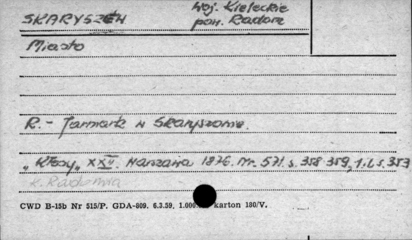 SKARYSZEW
woj. Kieleckie
pow. Radom
Miasto
R. - Jarmark w Skaryszewie.
"Kłosy" XXII. Warszawa 1876. Nr. 571. s. 358 359, 1. i. s. 353
K. Radomia
CWD B-15b Nr 515/P. GDA-809. 6.3.59, 1.000. karton 180/V.